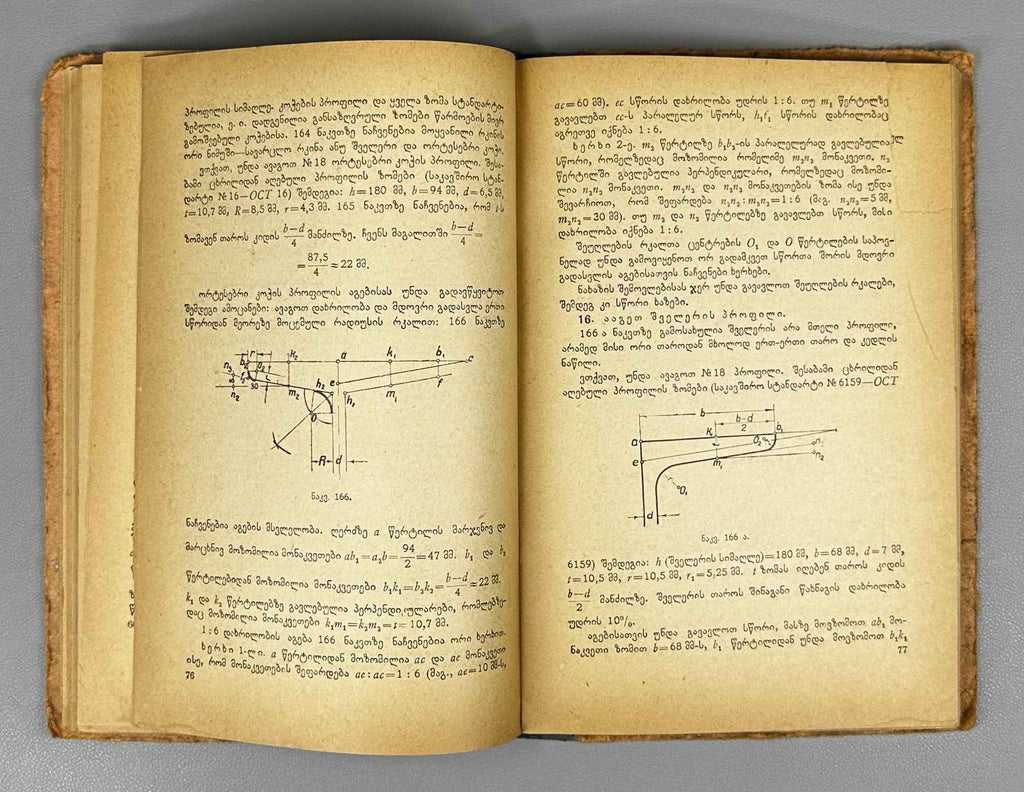 პროფილის სიმაღლე. კოჭების პროფილი და ყველა ზომა სტანდარტი-
ზებულია, ე. ი. დადგენილია განსაზღვრული ზომები წარმოების მიერ
გამოშვებული კოჭებისა. 164 ნაკვთზე ნაჩვენებია მოყვანილი რკინის
ორი ნიმუში—სავარცლო რკინა ანუ შველერი და ორტესებრი კოჭი.
ვთქვათ, უნდა ავაგოთ № 18 ორტესებრი კოჭის პროფილი. შესა-
ბამი ცხრილიდან აღებული პროფილის ზომები (საკავშირო სტან-
დარტი № 16—ОСТ 16) შემდეგია: h=180 მმ, b=94 მმ, d=6,5 მმ,
t=10,7 მმ, R=8,5 მმ, r=4,3 მმ. 165 ნაკვთზე ნაჩვენებია, რომ t-ს
ზომავენ თაროს კიდის b—d/4 მანძილზე. ჩვენს მაგალითში b—d/4 =
= 87,5/4 ≈ 22 მმ.
ორტესებრი კოჭის პროფილის აგებისას უნდა გადავწყვიტოთ
შემდეგი ამოცანები: ავაგოთ დახრილობა და მდოვრი გადასვლა ერთი
სწორიდან მეორეზე მოცემული რადიუსის რკალით: 166 ნაკვთზე
b₂ r k₂ a k₁ b₁ c
n₃ O₂ t e f
n₂ 30 m₂ h₂ h₁ m₁
O
R d
ნაკვ. 166.
ნაჩვენებია აგების მსვლელობა. ღერძზე a წერტილის მარჯვნივ და
მარცხნივ მოზომილია მონაკვეთები ab₁=a₂b= 94/2 =47 მმ. b₁ და b₂
წერტილებიდან მოზომილია მონაკვეთები b₁k₁=b₂k₂= b—d/4 ≈22 მმ.
k₁ და k₂ წერტილებზე გავლებულია პერპენდიკულარები, რომლებზე-
დაც მოზომილია მონაკვეთები k₁m₁=k₂m₂=t= 10,7 მმ.
1:6 დახრილობის აგება 166 ნაკვთზე ნაჩვენებია ორი ხერხით.
ხერხი 1-ლი. a წერტილიდან მოზომილია ac და ae მონაკვეთი
ისე, რომ მონაკვეთების შეფარდება ae : ac=1 : 6 (მაგ., ae=10 მმ-ს,
76
ac=60 მმ). ec სწორის დახრილობა უდრის 1 : 6. თუ m₁ წერტილზე
გავავლებთ ec-ს პარალელურ სწორს, h₁f₁ სწორის დახრილობაც
აგრეთვე იქნება 1 : 6.
ხერხი 2-ე. m₂ წერტილზე b₁b₂-ის პარალელურად გავლებულია
სწორი, რომელზედაც მოზომილია რომელიმე m₂n₂ მონაკვეთი. n₂
წერტილში გავლებულია პერპენდიკულარი, რომელზედაც მოზომი-
ლია n₂n₃ მონაკვეთი. m₂n₂ და n₂n₃ მონაკვეთების ზომა ისე უნდა
შევარჩიოთ, რომ შეფარდება n₂n₃ : m₂n₂=1 : 6 (მაგ. n₂n₃=5 მმ,
m₂n₂=30 მმ). თუ m₂ და n₃ წერტილებზე გავავლებთ სწორს, მისი
დახრილობა იქნება 1 : 6.
შეუღლების რკალთა ცენტრების O₁ და O წერტილების საპოვ-
ნელად უნდა გამოვიყენოთ ორ გადამკვეთ სწორთა შორის მდოვრი
გადასვლის აგებისათვის ნაჩვენები ხერხები.
ნახაზის შემოვლებისას ჯერ უნდა გავავლოთ შეუღლების რკალები,
შემდეგ კი სწორი ხაზები.
16. ააგეთ შველერის პროფილი.
166 ა ნაკვთზე გამოსახულია შველერის არა მთელი პროფილი,
არამედ მისი ორი თაროდან მხოლოდ ერთ-ერთი თარო და კედლის
ნაწილი.
ვთქვათ, უნდა ავაგოთ № 18 პროფილი. შესაბამი ცხრილიდან
აღებული პროფილის ზომები (საკავშირო სტანდარტი № 6159—ОСТ
b
b-d/2
a k₁ b₁
e O₂ n₁
m₁ n₂
O₁
d
ნაკვ. 166 ა.
6159) შემდეგია: h (შველერის სიმაღლე)=180 მმ, b=68 მმ, d=7 მმ,
t=10,5 მმ, r=10,5 მმ, r₁=5,25 მმ. t ზომას იღებენ თაროს კიდის
b—d/2 მანძილზე. შველერის თაროს შინაგანი წახნაგის დახრილობა
უდრის 10%.
აგებისათვის უნდა გავავლოთ სწორი, მასზე მოვზომოთ ab₁ მო-
ნაკვეთი ზომით b=68 მმ-ს, b₁ წერტილიდან უნდა მოვზომოთ b₁k₁
77